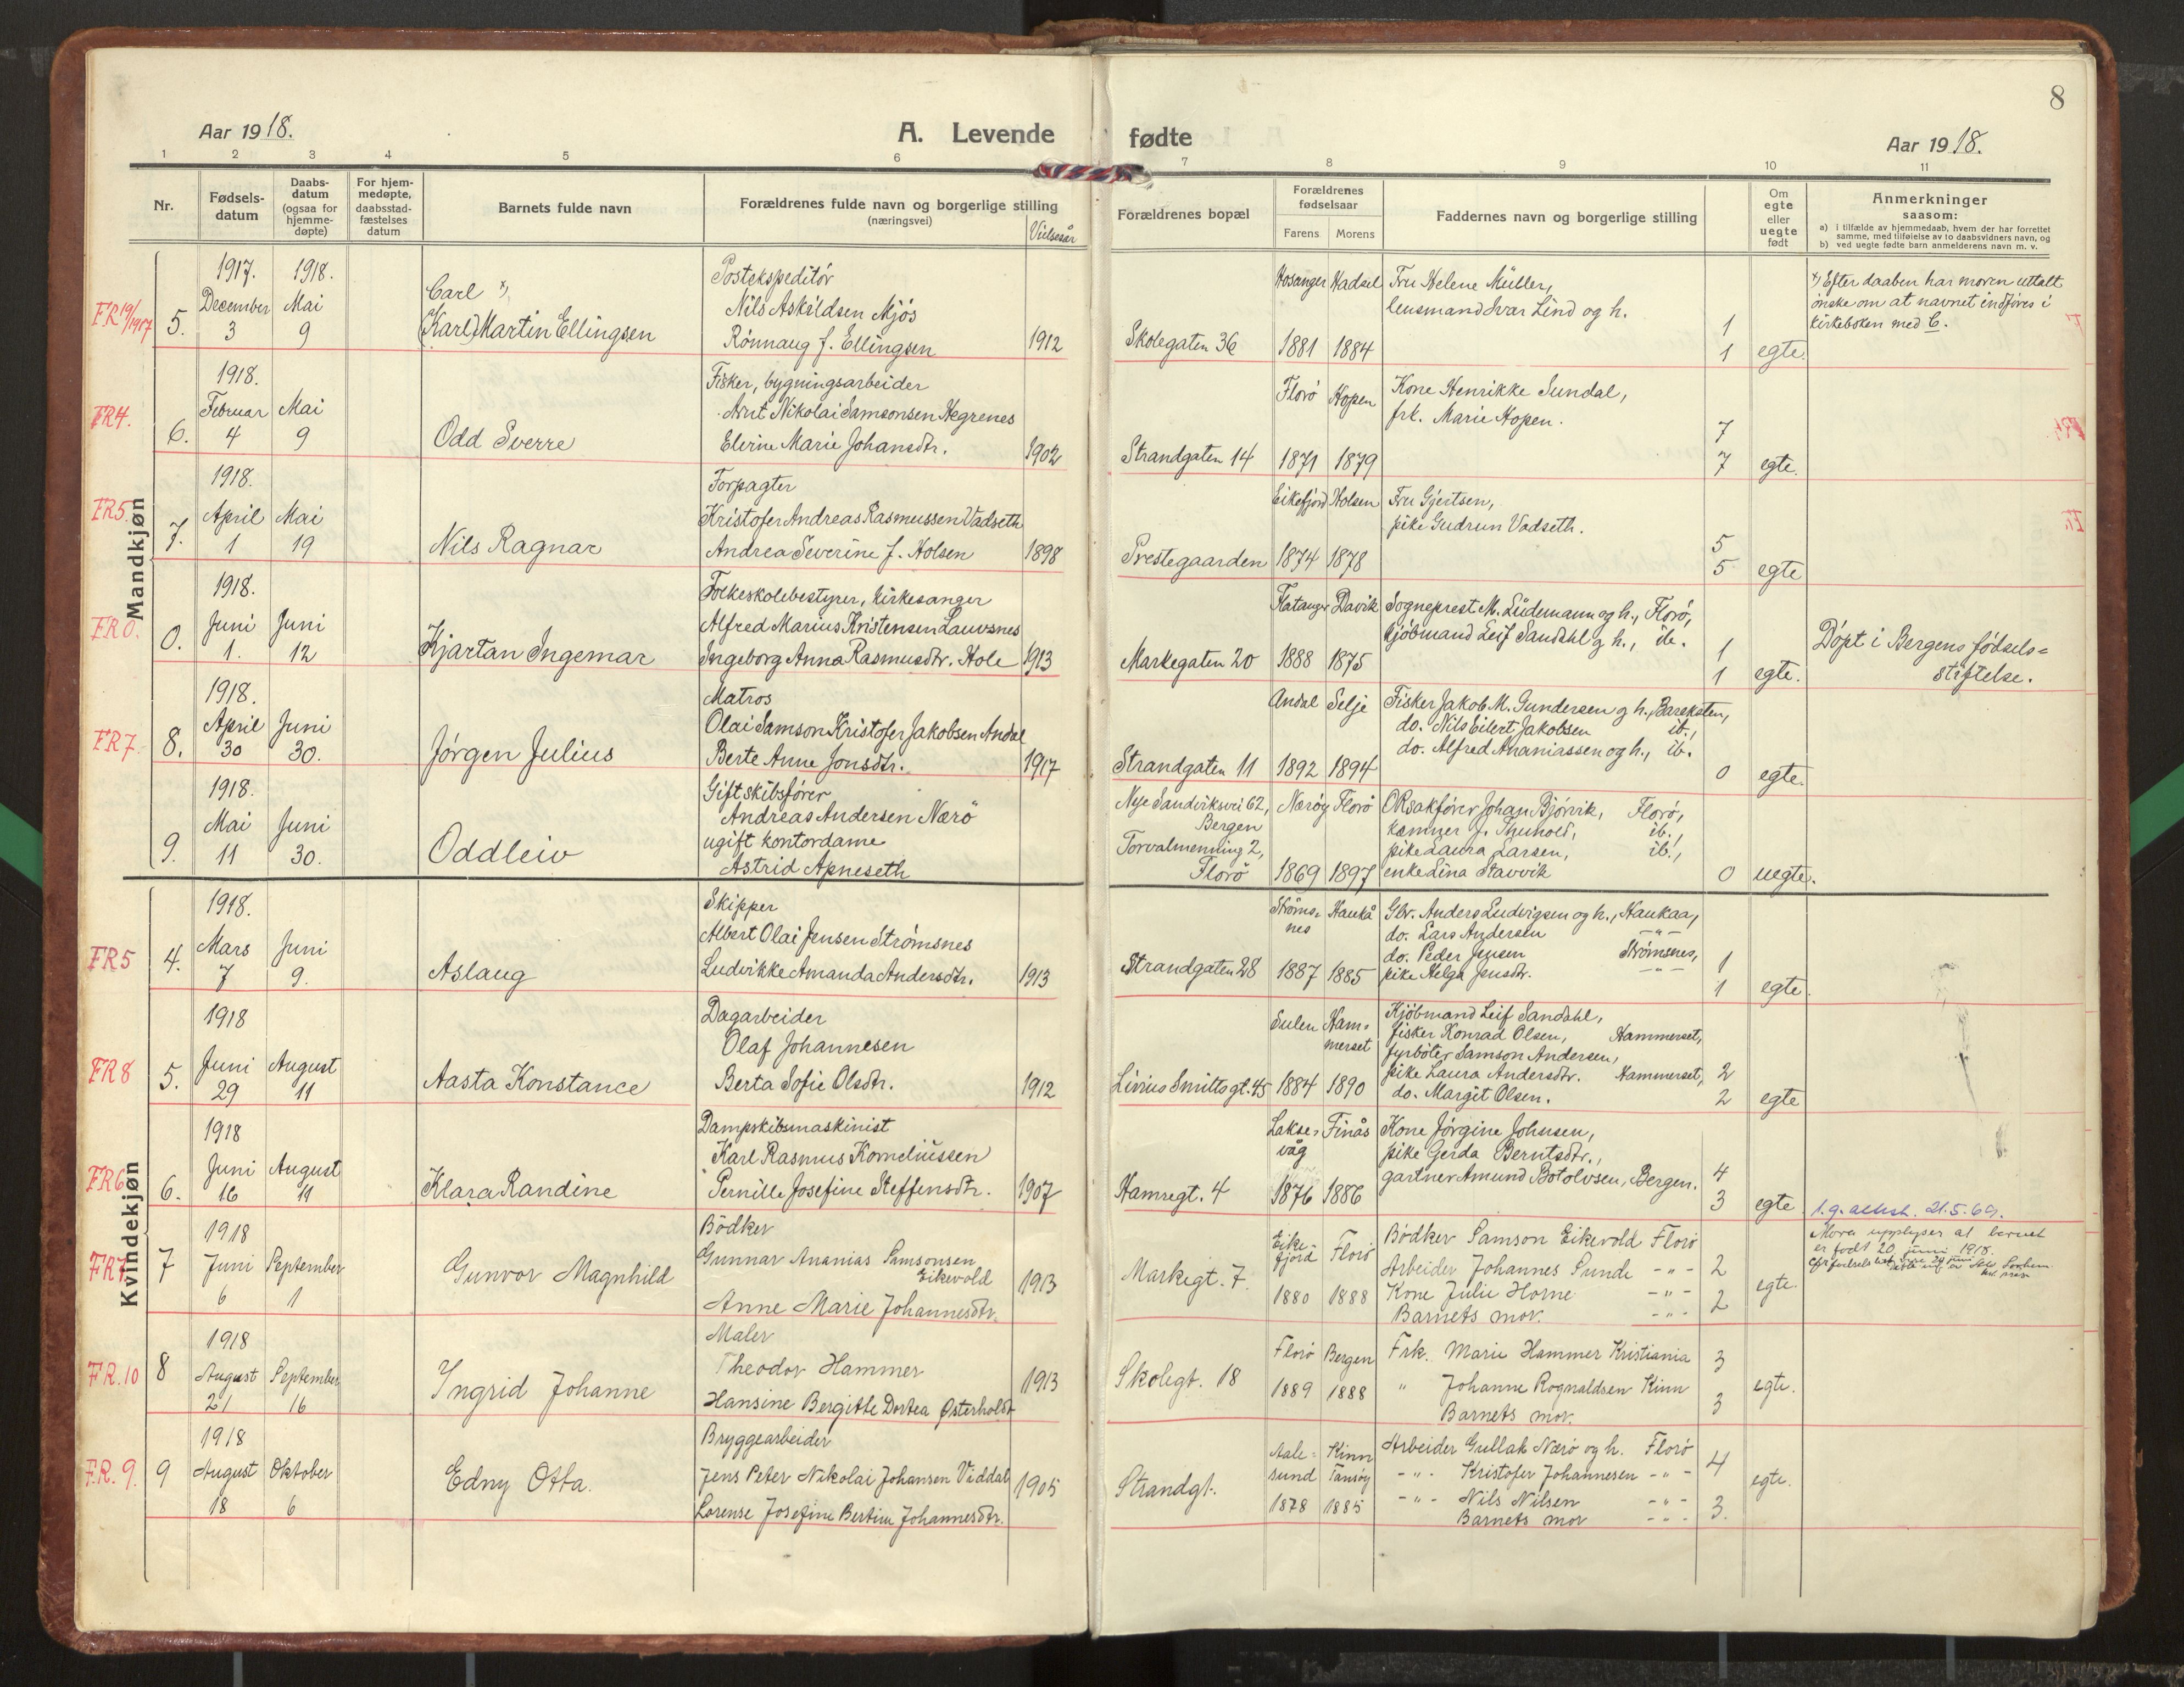 8
Aar 1918.
A. Levende fødte
Aar 1918.
1 2 3 4 5 6 7 8 9 10 11
Nr.
Fødsels-
datum
Daabs-
datum
(ogsaa for
hjemme-
døpte)
For hjem-
medøpte,
daabsstad-
fæstelses
datum
Barnets fulde navn
Forældrenes fulde navn og borgerlige stilling
(næringsvei)
Vielsesår
Forældrenes bopæl
Forældrenes
fødselsaar
Farens Morens
Faddernes navn og borgerlige stilling
Om
egte
eller
uegte
født
Anmerkninger
saasom:
a) i tilfælde av hjemmedaab, hvem der har forrettet
samme, med tilføielse av to daabsvidners navn, og
b) ved uegte fødte barn anmelderens navn m. v.
Mandkjøn
FR 19/1917
5.
1917.
December
3
1918.
Mai
9
Carl x)
(Karl) Martin Ellingsen
Postekspeditør
Nils Askildsen Mjös
Rønnaug f. Ellingsen
1912
Skolegaten 36
Hosanger Hadsel
1881 1884
Fru Helene Müller,
lensmand Ivar Lind og h.
1
1
egte.
x) Efter daaben har moren uttalt
ønske om at navnet indføres i
kirkeboken med C.
FR4.
6.
1918.
Februar
4
Mai
9
Odd Sverre
Fisker, bygningsarbeider
Arnt Nikolai Samsonsen Hegrenes
Elerine Marie Johansdtr.
1902
Strandgaten 14
Florö Hopen
1871 1879
Kone Henrikke Sundal,
frk. Marie Hopen.
7
7
egte.
FR5.
7.
1918.
April
1
Mai
19
Nils Ragnar
Forpagter
Kristofer Andreas Rasmussen Vadseth
Andrea Severine f. Holsen
1898
Prestegaarden
Eikefjord Holsen
1874 1878
Fru Gjertsen,
pike Gudrun Vadseth.
5
5
egte
FR0.
0.
1918.
Juni
1.
Juni
12
Kjartan Ingemar
Folkeskolebestyrer, kirkesanger
Alfred Marius Kristensen Lauvsnes
Ingeborg Anna Rasmusdtr. Hole
1913
Markegaten 20
Flatanger Davik
1888 1875
Sogneprest M. Lüdemann og h., Florö,
kjöbmand Leif Sandahl og h., ib.
1
1
egte.
Döpt i Bergens födsels=
stiftelse.
FR7
8.
1918.
April
30
Juni
30.
Jørgen Julius
Matros
Olai Samson Kristofer Jakobsen Andal
Berte Anne Jonsdtr.
1917
Strandgaten 11
Andal Selje
1892 1894
Fisker Jakob M. Gundersen og h., Barekaten,
do. Nils Eilert Jakobsen ib.,
do. Alfred Ananiassen og h., ib.
0
egte.
9.
1918.
Mai
11
Juni
30.
Oddleiv
Gift skibsfører
Andreas Andersen Nærö
ugift kontordame
Astrid Apneseth
Nye Sandviksvei 62,
Bergen
Torvalmenning 2,
Florö
Nærøy Florö
1869 1897
ORsakfører Johan Bjørvik, Florö,
kæmner J. Thunold, ib.,
pike Laura Larsen, ib.,
enke Lina Stavvik
0
uegte.
Kvindekjøn
FR5
4.
1918.
Mars
7
Juni
9.
Aslaug
Skipper
Albert Olai Jensen Strømsnes
Ludvikke Amanda Andersdtr.
1913
Strandgaten 28
Strøms= Haukå
nes
1887 1885
Gbr. Anders Ludvigsen og h., Haukaa,
do. Lars Andersen -"-
do. Peder Jensen Strømsnes,
pike Helga Jensdtr. -"-
1
1
egte
FR8
5.
1918
Juni
29
August
11
Aasta Konstance
Dagarbeider
Olaf Johannesen
Berta Sofie Olsdtr.
1912
Livius Smitts gt. 45
Sulen Ham=
merset
1884 1890
Kjöbmand Leif Sandahl,
fisker Konrad Olsen, Hammerset,
fyrböter Samson Andersen,
pike Laura Andersdtr. Hammerset,
do. Margit Olsen.
2
2
egte
FR6
6.
1918
Juni
16
August
11
Klara Randine
Dampskibsmaskinist
Karl Rasmus Korneliussen
Pernille Josefine Steffensdtr.
1907
Hamregt. 4
Lakse= Finås
våg
1876 1886
Kone Jørgine Johnsen,
pike Gerda Berntsdtr.,
gartner Amund Botolvsen, Bergen.
4
3
egte
1.g. attest. 21.5.69.
FR7
7
1918
Juni
6
September
1
Gunvor Magnhild
Bödker
Gunnar Ananias Samsonsen
Eikevold
Anne Marie Johannesdtr.
1913
Markegt. 7.
Eike- Florö
fjord
1880 1888
Bödker Samson Eikevold Florö
Arbeider Johannes Sunde -"-
Kone Julie Horne -"-
Barnets mor. -"-
2
2
egte.
Mora upplyser at barnet
er født 20 juni 1918.
FR.10
8
1918
August
21
September
16
Yngrid Johanne
Maler
Theodor Hammer
Hansine Bergitte Dortea Østerholdt
1913
Skolegt. 18
Florö Bergen
1889 1888
Frk. Marie Hammer Kristiania
" Johanne Rognaldsen Kinn
Barnets mor.
3
3
egte.
FR. 9.
9
1918
August
18
Oktober
6
Edny Otta.
Bryggearbeider
Jens Peter Nikolai Johansen Viddal
Lorense Josefine Bertine Johannesdtr.
1905
Strandgt.
Aale- Kinn
sund Tansøy
1878 1885
Arbeider Gullak Nærö og h. Florö
-"- Kristofer Johannesen -"-
-"- Nils Nilsen -"-
Barnets mor -"-
4
3.
egte.